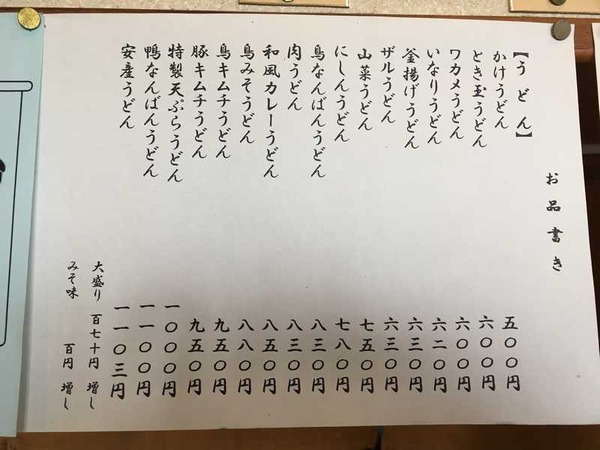 お品書き
【うどん】
かけうどん 五〇〇円
とき玉うどん 六〇〇円
ワカメうどん 六〇〇円
いなりうどん 六二〇円
釜揚げうどん 六三〇円
ザルうどん 六三〇円
山菜うどん 七五〇円
にしんうどん 七八〇円
鳥なんばんうどん 八三〇円
肉うどん 八三〇円
和風カレーうどん 八五〇円
鳥みそうどん 八八〇円
鳥キムチうどん 九五〇円
豚キムチうどん 九五〇円
特製天ぷらうどん 一〇〇〇円
鴨なんばんうどん 一一〇〇円
安産うどん 一一〇三円
大盛り 百七十円 増し
みそ味 百円 増し